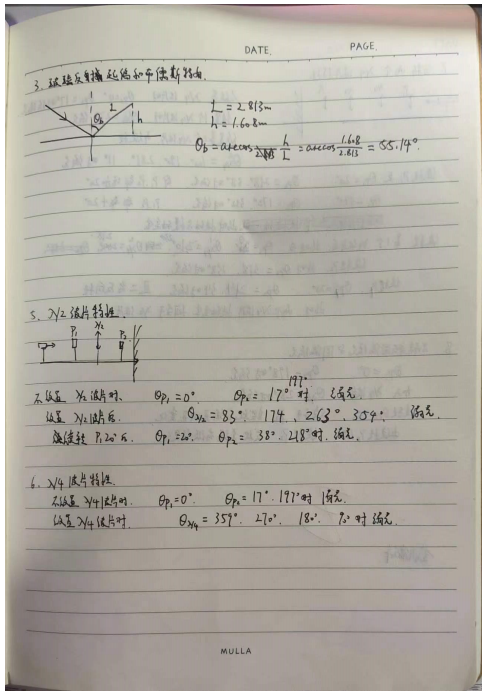 DATE. PAGE.
3. 玻璃反射镜起偏和布儒斯特角.
θb L h
L = 2.813m
h = 1.608m
θb = arccos h/L = arccos 1.608/2.813 = 55.14°.
5. λ/2 波片特性.
P1 λ/2 P2
197°
不放置 λ/2 波片时. θP1 = 0° θP2 = 17° 时. 消光.
放置 λ/2 波片后. θλ/2 = 83°. 174. 263°. 354°. 消光.
旋转 P1 20°后. θP1 = 20°. θP2 = 38°. 218°时. 消光.
6. λ/4 波片特性.
不放置 λ/4 波片时. θP1 = 0°. θP2 = 17°. 197°时 消光.
放置 λ/4 波片时. θλ/4 = 359°. 270°. 180°. 90°时 消光.
MULLA